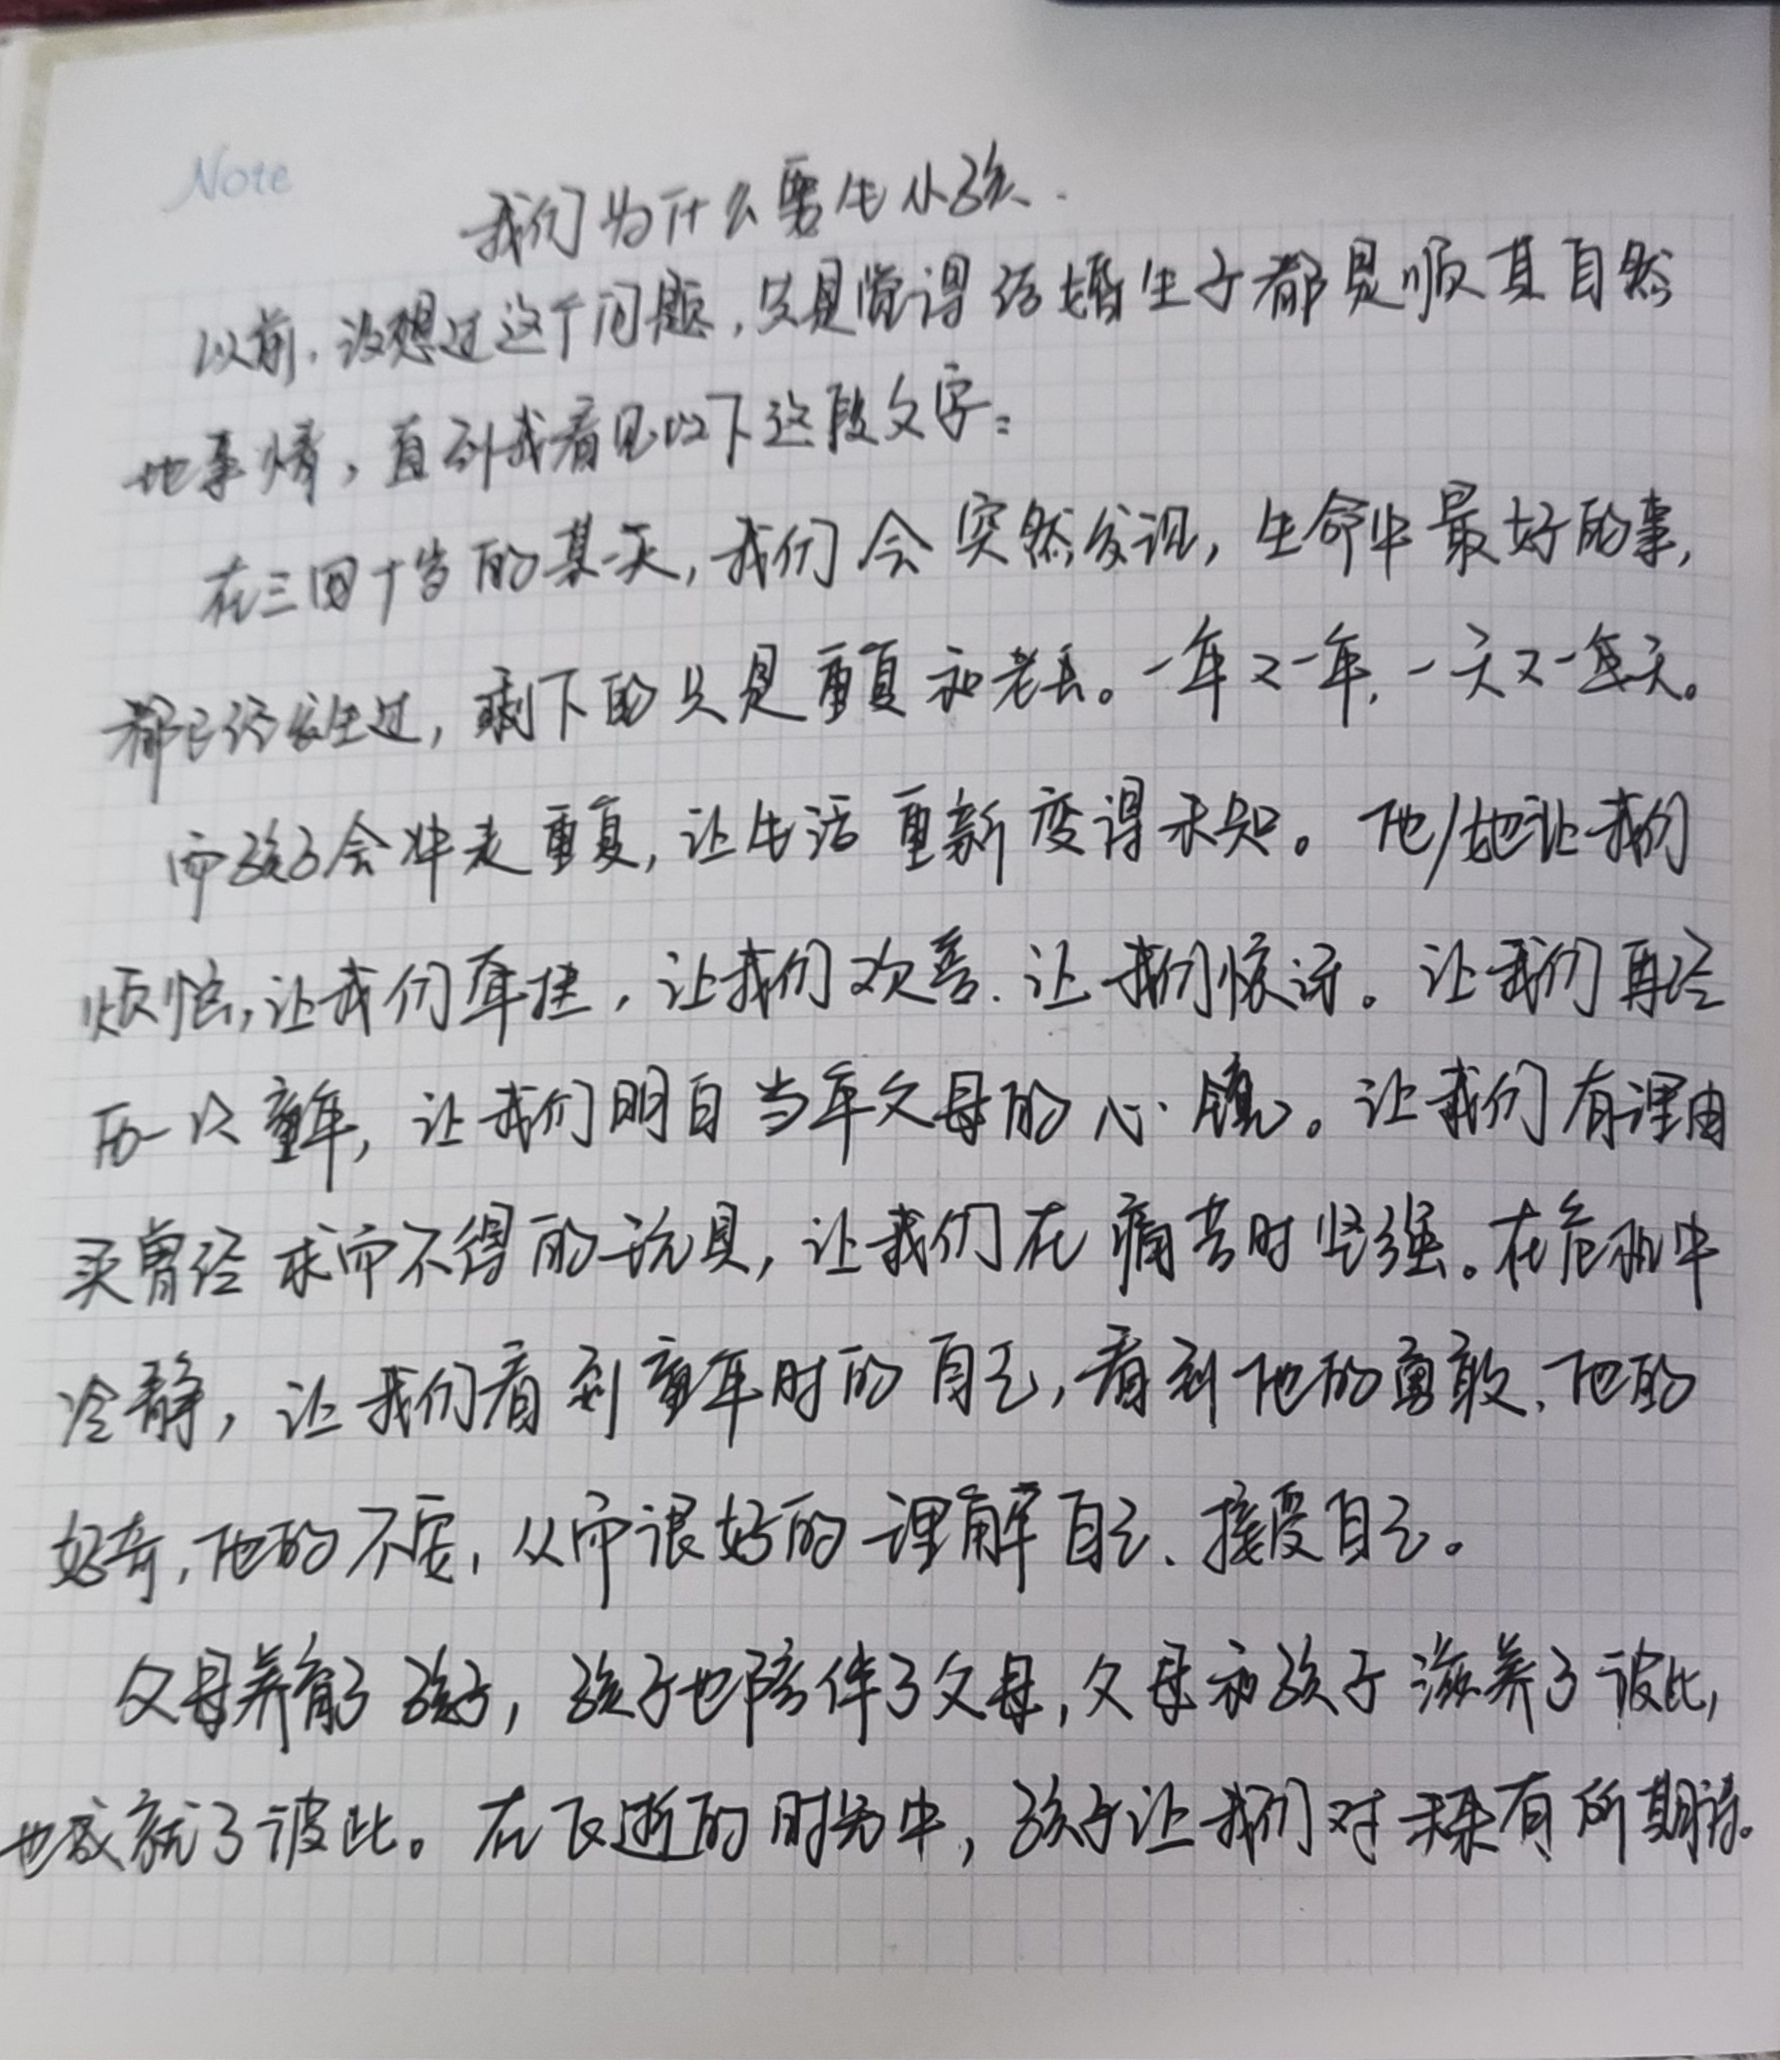 Note
我们为什么要生小孩.
以前,没想过这个问题,只是觉得结婚生子都是顺其自然
地事情,直到我看见以下这段文字:
在三四十岁的某一天,我们会突然发现,生命中最好的事,
都已经发生过,剩下的只是重复和老去。一年又一年,一天又一天。
而孩子会冲走重复,让生活重新变得未知。他/她让我们
烦恼,让我们牵挂,让我们欢喜、让我们惊讶。让我们再经
历一次童年,让我们明白当年父母的心境。让我们有理由
买曾经求而不得的玩具,让我们在痛苦时坚强。在危机中
冷静,让我们看到童年时的自己,看到他的勇敢、他的
好奇,他的不安,从而很好的理解自己、接受自己。
父母养育了孩子,孩子也陪伴了父母,父母和孩子滋养了彼此,
也成就了彼此。在飞逝的时光中,孩子让我们对未来有所期待。